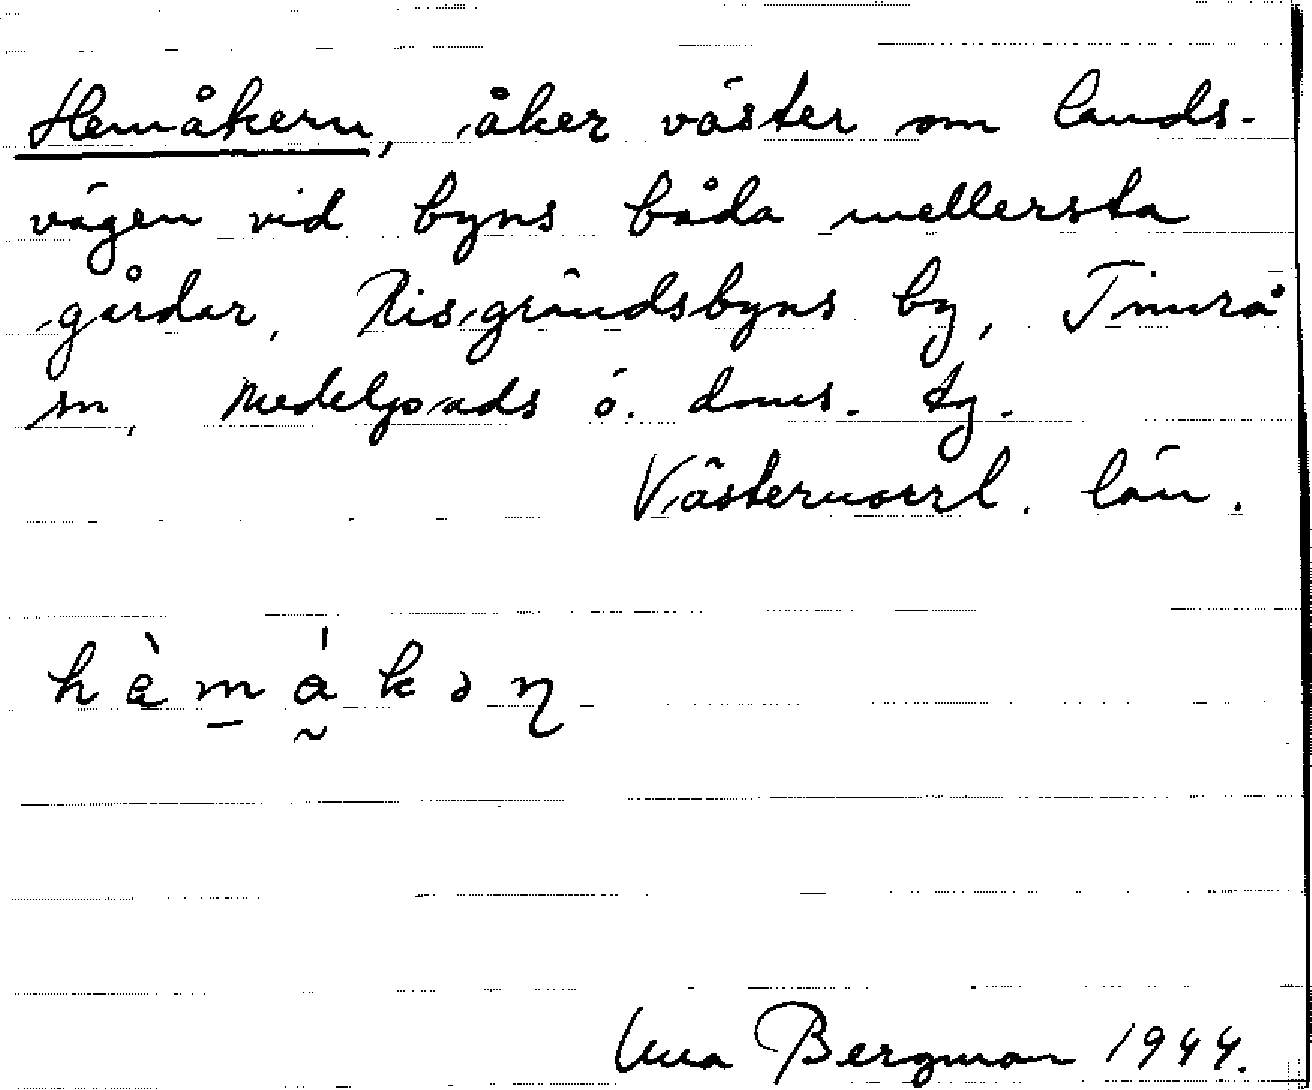 Hemåkern, åker väster om lands-
vägen vid byns båda mellersta
gårdar, Risgrändsbyns by, Timrå
sn, Medelpads ö. doms. tg.
Västernorrl. län.
Bergman 1944.